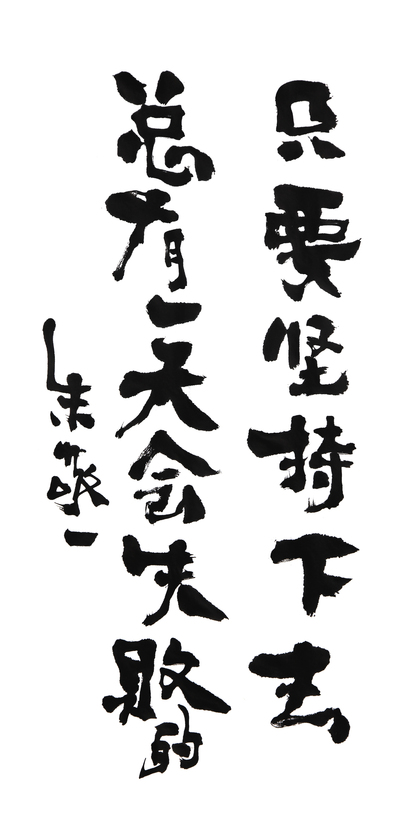 只要坚持下去
总有一天会失败的
朱敬一